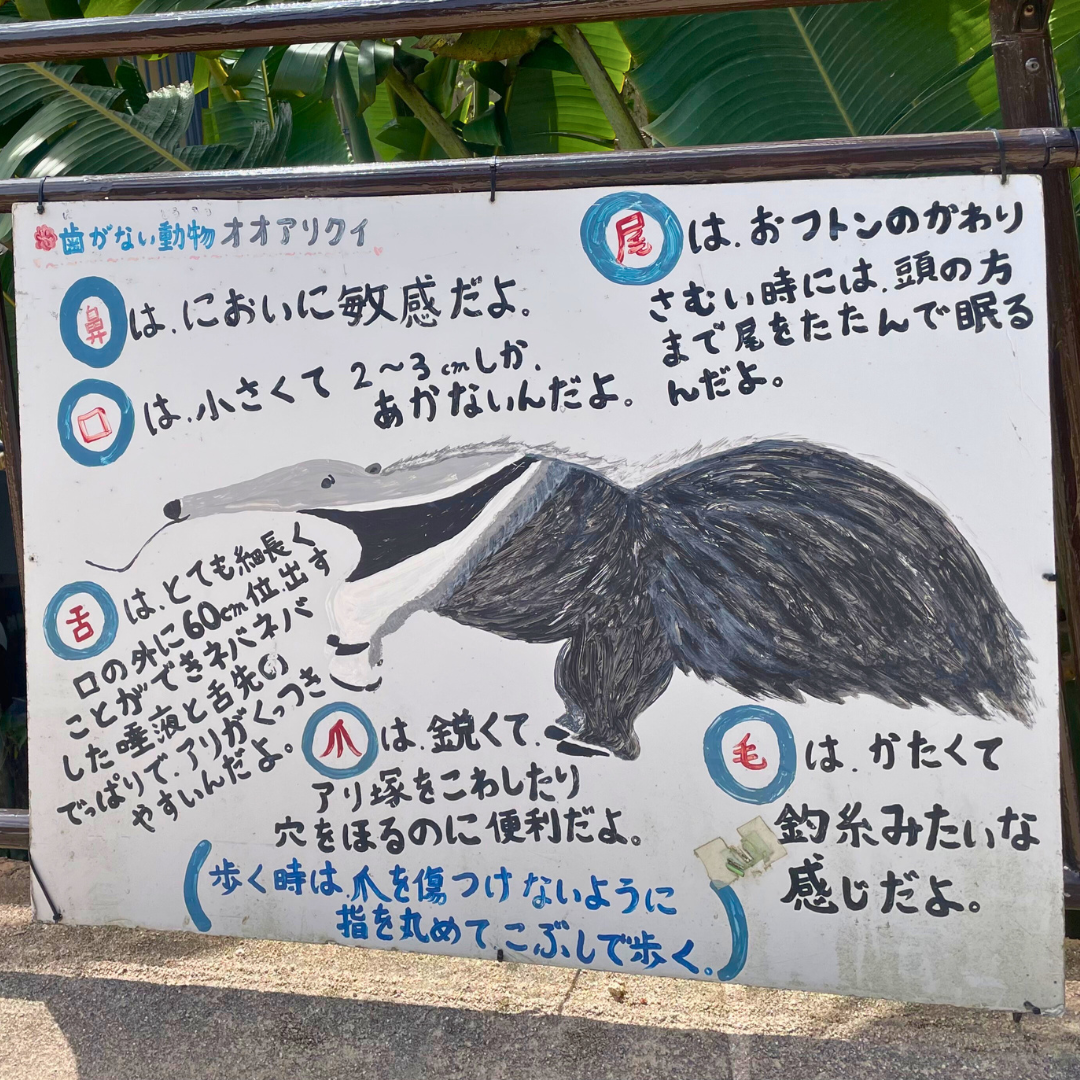 歯がない動物オオアリクイ
鼻は、においに敏感だよ。
口は、小さくて2〜3cmしか、
あかないんだよ。
尾は、おフトンのかわり
さむい時には、頭の方
まで尾をたたんで眠る
んだよ。
舌は、とても細長く
口の外に60cm位、出す
ことができネバネバ
した唾液と舌先の
でっぱりで、アリがくっつき
やすいんだよ。
爪は、鋭くて、
アリ塚をこわしたり
穴をほるのに便利だよ。
(歩く時は、爪を傷つけないように
指を丸めて、こぶしで歩く。)
毛は、かたくて
釣糸みたいな
感じだよ。